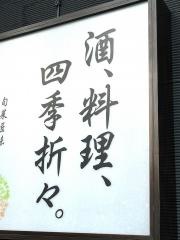 酒、料理、
四季折々。
旬菜厚味